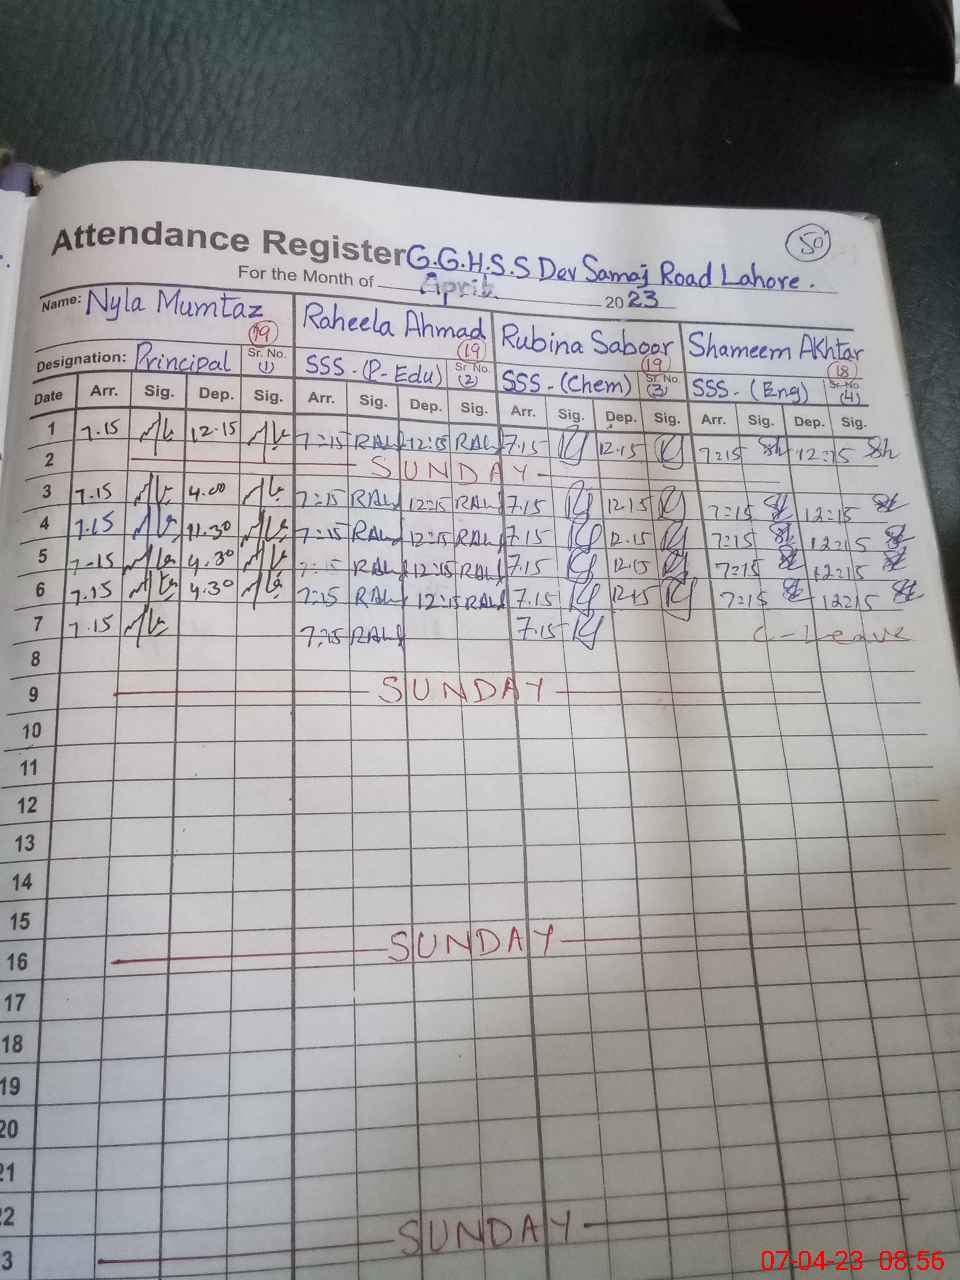 50
Attendance Register G.G.H.S.S Dev Samaj Road Lahore.
For the Month of April 2023
Name: Nyla Mumtaz Raheela Ahmad Rubina Saboor Shameem Akhtar
19 19 19 18
Designation: Principal Sr. No. (1) SSS-(P-Edu) Sr. No. (2) SSS-(Chem) Sr. No. (3) SSS-(Eng) Sr. No. (4)
Date Arr. Sig. Dep. Sig. Arr. Sig. Dep. Sig. Arr. Sig. Dep. Sig. Arr. Sig. Dep. Sig.
1 7.15 12.15 7:15 12:15 7.15 12.15 7:15 12:15
2 SUNDAY
3 7.15 4.00 7:15 12:15 7.15 12.15 7:15 12:15
4 7.15 11.30 7:15 12:15 7.15 12.15 7:15 12:15
5 7.15 4.30 7:15 12:15 7.15 12.15 7:15 12:15
6 7.15 4.30 7:15 12:15 7.15 12.15 7:15 12:15
7 7.15 7:15 7.15 C-Leave
8
9 SUNDAY
10
11
12
13
14
15
16 SUNDAY
17
18
19
20
21
22
3 SUNDAY
07-04-23 08:56